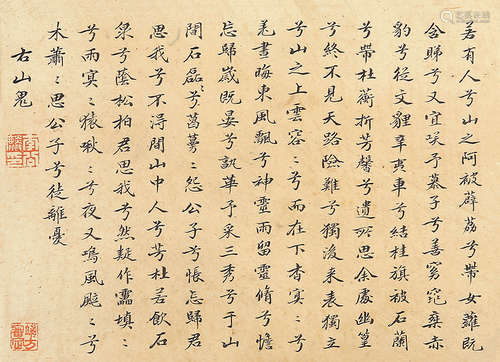 若有人兮山之阿被薜荔兮帶女蘿既
含睇兮又宜笑子慕予兮善窈窕乘赤
豹兮從文貍辛夷車兮結桂旗被石蘭
兮帶杜蘅折芳馨兮遺所思余處幽篁
兮終不見天路險難兮獨後來表獨立
兮山之上雲容〻兮而在下杳冥〻兮
羌晝晦東風飄兮神靈雨留靈脩兮憺
忘歸歲既晏兮孰華予采三秀兮于山
間石磊〻兮葛蔓〻怨公子兮悵忘歸君
思我兮不得間山中人兮芳杜若飲石
泉兮蔭松柏君思我兮然疑作靁填〻
兮雨冥〻猿啾〻兮夜又鳴風颯〻兮
木蕭〻思公子兮徒離憂
右山鬼